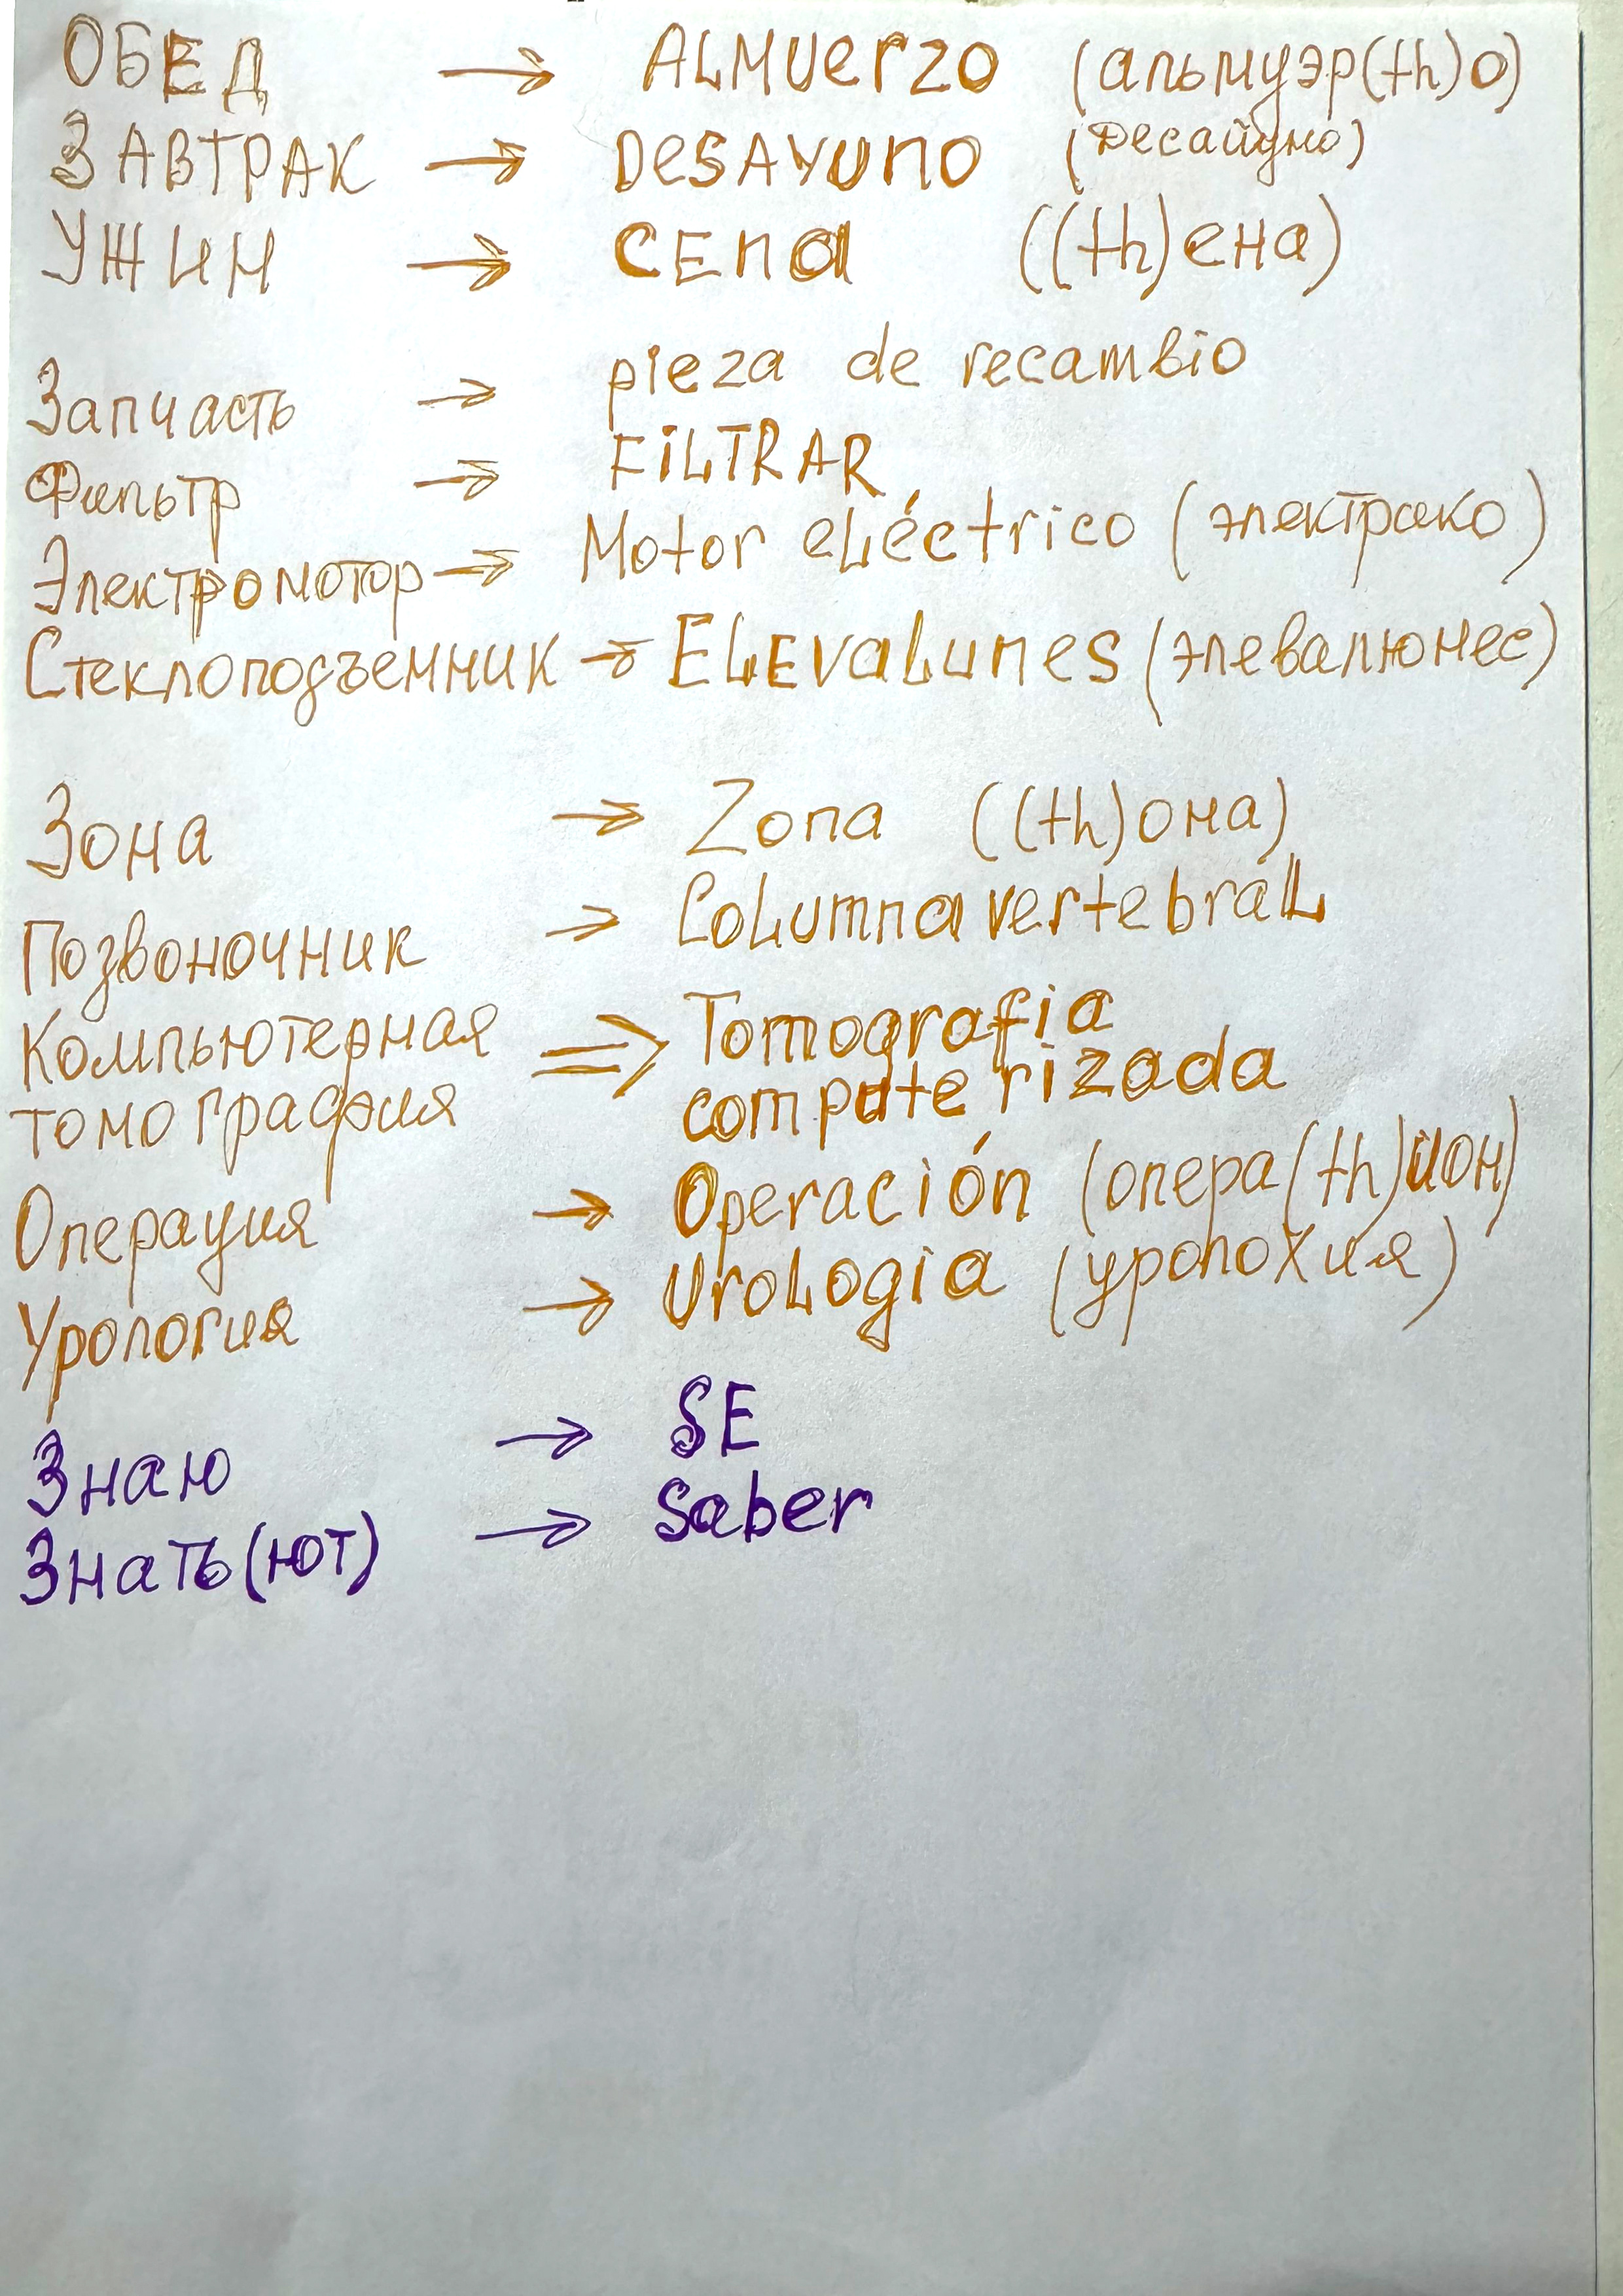 ОБЕД → ALMUerzo (альмуэр(th)о)
ЗАВТРАК → DeSAYUno (Десайуно)
УЖИН → CEna ((th)ена)
Запчасть → pieza de recambio
Фильтр → FiLTRAR
Электромотор → Motor eLéctrico (электрико)
Стеклоподъемник → ELEvaLunes (элевалюнес)
Зона → Zona ((th)она)
Позвоночник → CoLumna vertebraL
Компьютерная ⇒ Tomografia
томография computerizada
Операция → Operación (опера(th)ион)
Урология → UroLogia (уролохия)
Знаю → SE
Знать(ют) → Saber